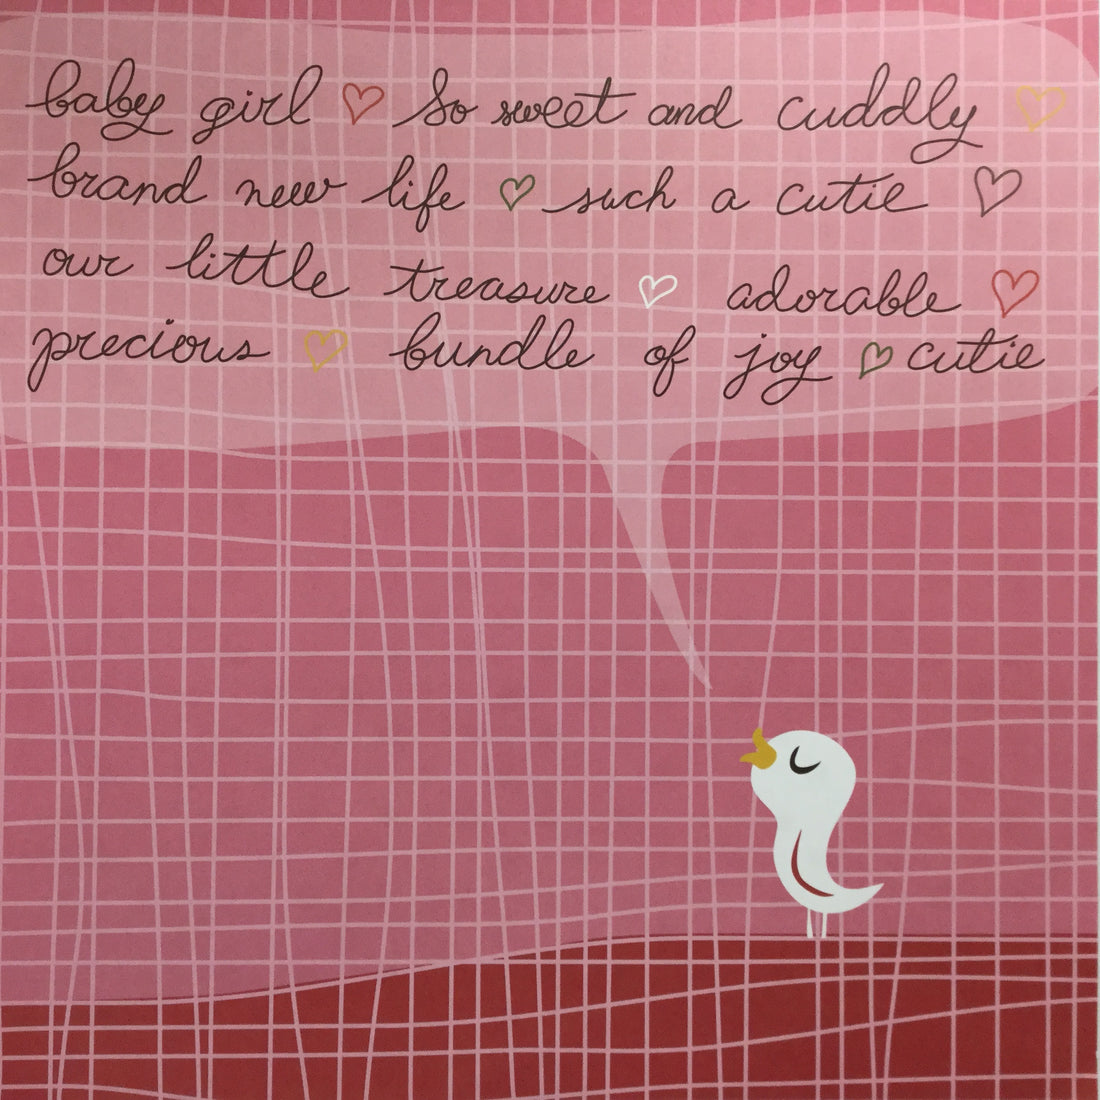 baby girl ♡ So sweet and cuddly ♡
brand new life ♡ such a cutie ♡
our little treasure ♡ adorable ♡
precious ♡ bundle of joy ♡ cutie